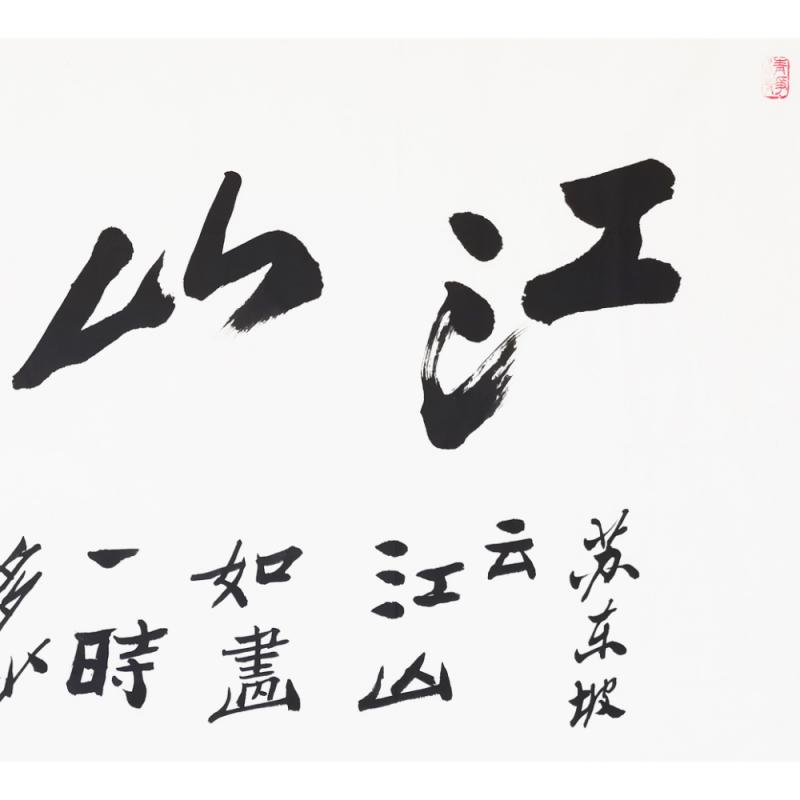 江山
苏东坡
云
江山
如畫
一時
多少